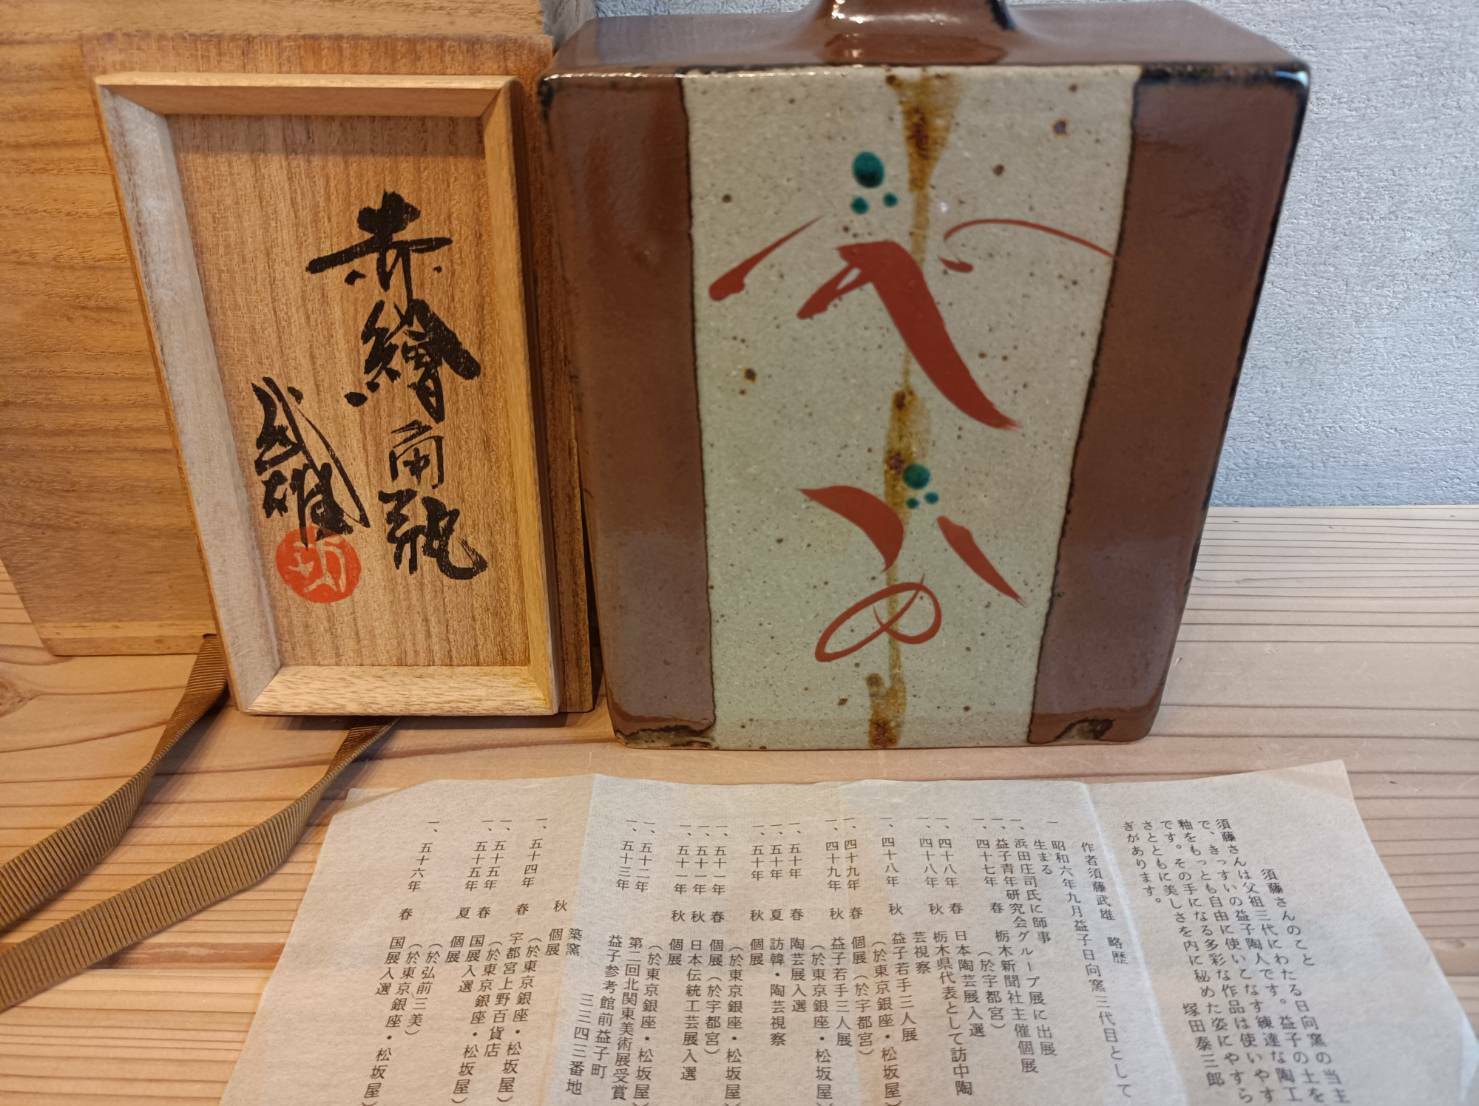 赤繪角瓶
武雄
須藤さんのこと
須藤さんは父祖三代にわたる日向窯の当主
で、きっすいの益子陶人です。益子の土を
釉をもっとも自由に使いこなす練達な陶工
です。その手になる多彩な作品は使いやす
さとともに美しさを内に秘めた姿にやすら
ぎがあります。
塚田泰三郎
作者須藤武雄　略歴
一　昭和六年九月益子日向窯三代目として
生まる
一、浜田庄司氏に師事
一、益子青年研究会グループ展に出展
一、四十七年　春　栃木新聞社主催個展
（於宇都宮）
一、四十八年　春　日本陶芸展入選
一、四十八年　秋　栃木県代表として訪中陶
芸視察
一、四十八年　秋　益子若手三人展
（於東京銀座・松坂屋）
一、四十九年　春　個展（於宇都宮）
一、四十九年　秋　益子若手三人展
（於東京銀座・松坂屋）
一、五十年　春　陶芸展入選
一、五十年　夏　訪韓・陶芸視察
一、五十年　秋　個展
（於東京銀座・松坂屋）
一、五十一年　春　個展（於宇都宮）
一、五十一年　秋　日本伝統工芸展入選
一、五十一年　秋　個展
（於東京銀座・松坂屋）
一、五十二年　第二回北関東美術展受賞
一、五十三年　益子参考館前益子町
三三四三番地
築窯
一、五十四年　秋　個展
（於東京銀座・松坂屋）
一、五十五年　春　宇都宮上野百貨店
（於東京銀座・松坂屋）
一、五十五年　夏　国展入選
個展
（於弘前三美）
（於東京銀座・松坂屋）
一、五十六年　春　国展入選